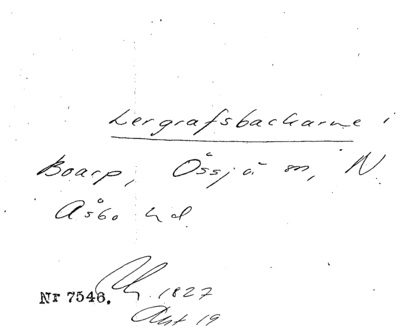 Lergrafsbackarne i
Boarp, Össjö sn, N.
Åsbo hd.
1827
Nr 7546.
Akt 19